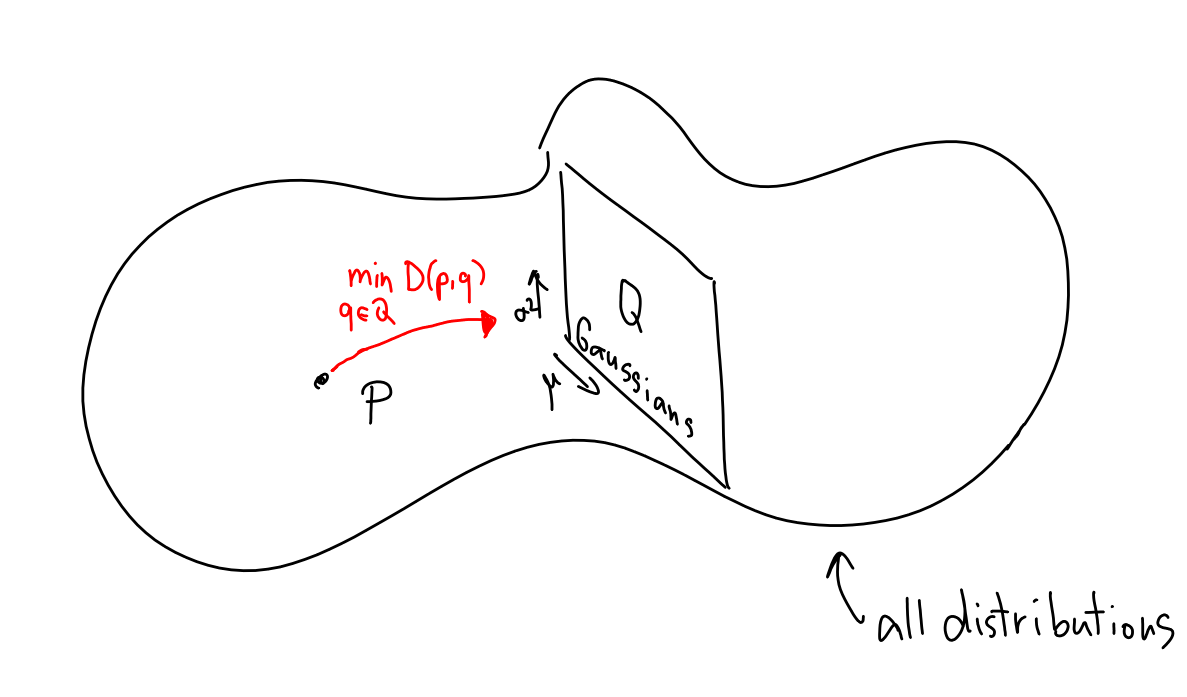 min D(p,q)
q∈Q
P
σ²
μ
Q
Gaussians
all distributions